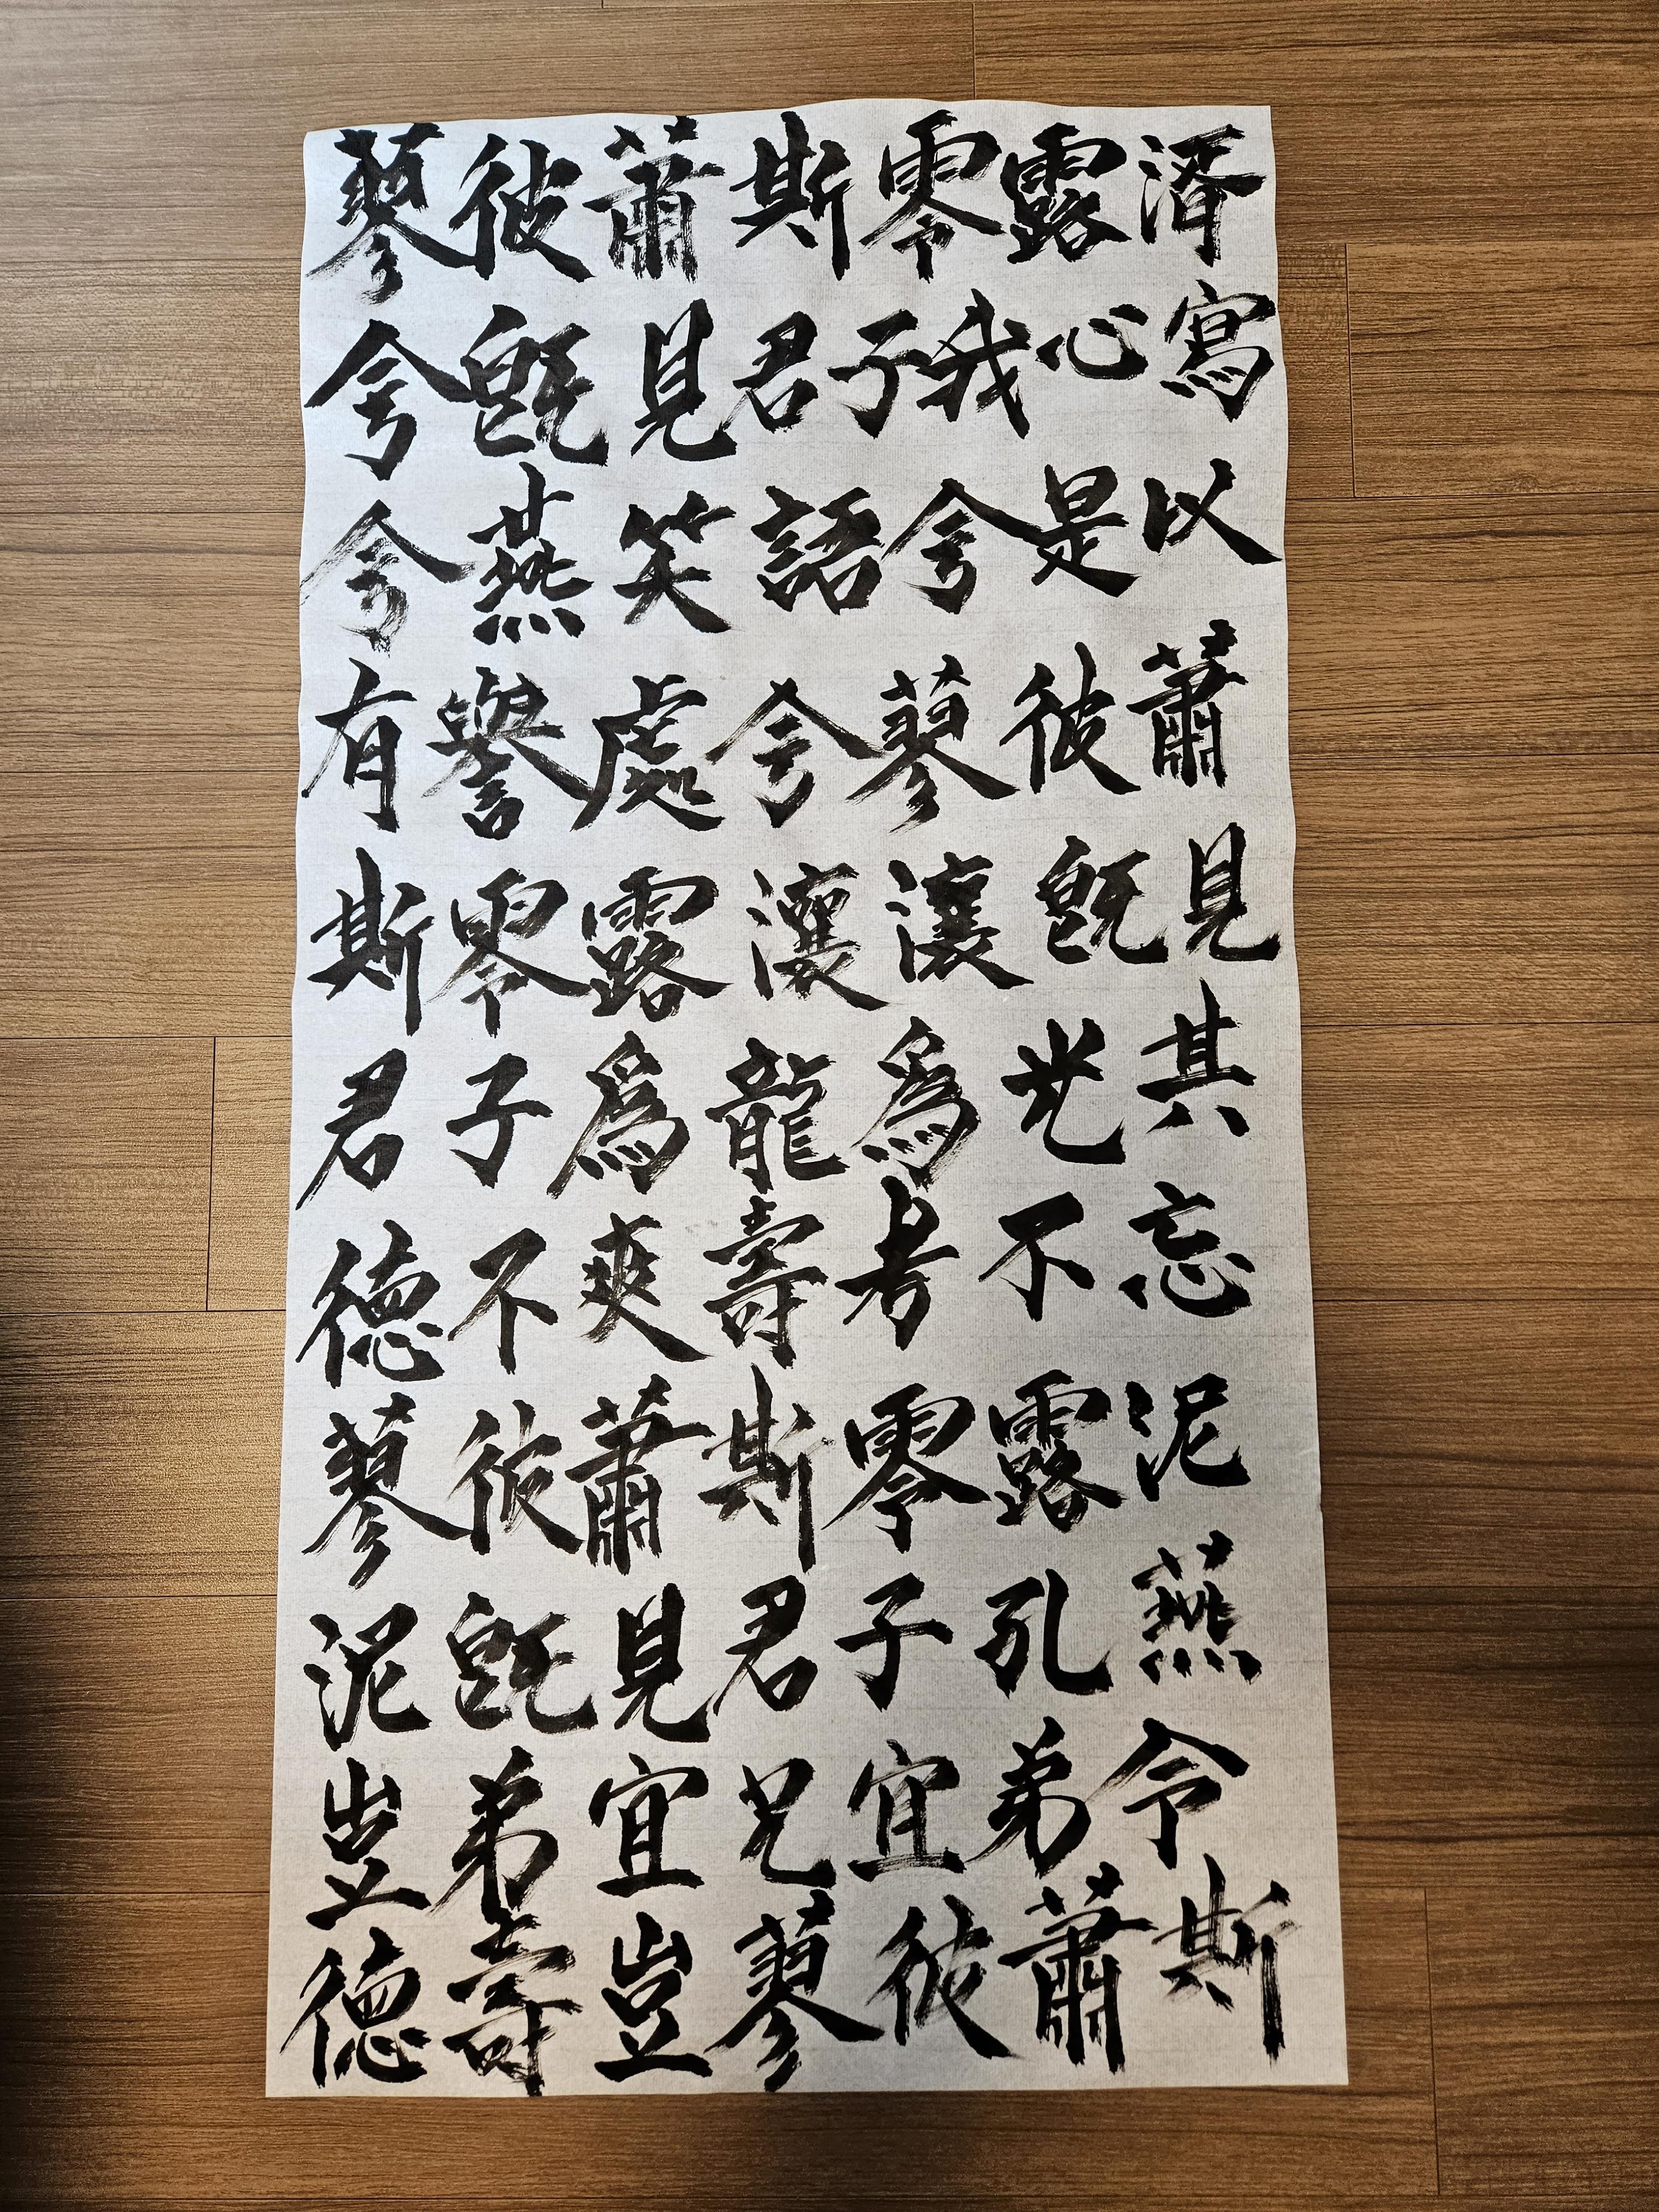 蓼彼蕭斯零露湑
兮既見君子我心寫
兮燕笑語兮是以
有譽處兮蓼彼蕭
斯零露瀼瀼既見
君子爲龍爲光其
德不爽壽考不忘
蓼彼蕭斯零露泥
泥既見君子孔燕
豈弟宜兄宜弟令
德壽豈蓼彼蕭斯